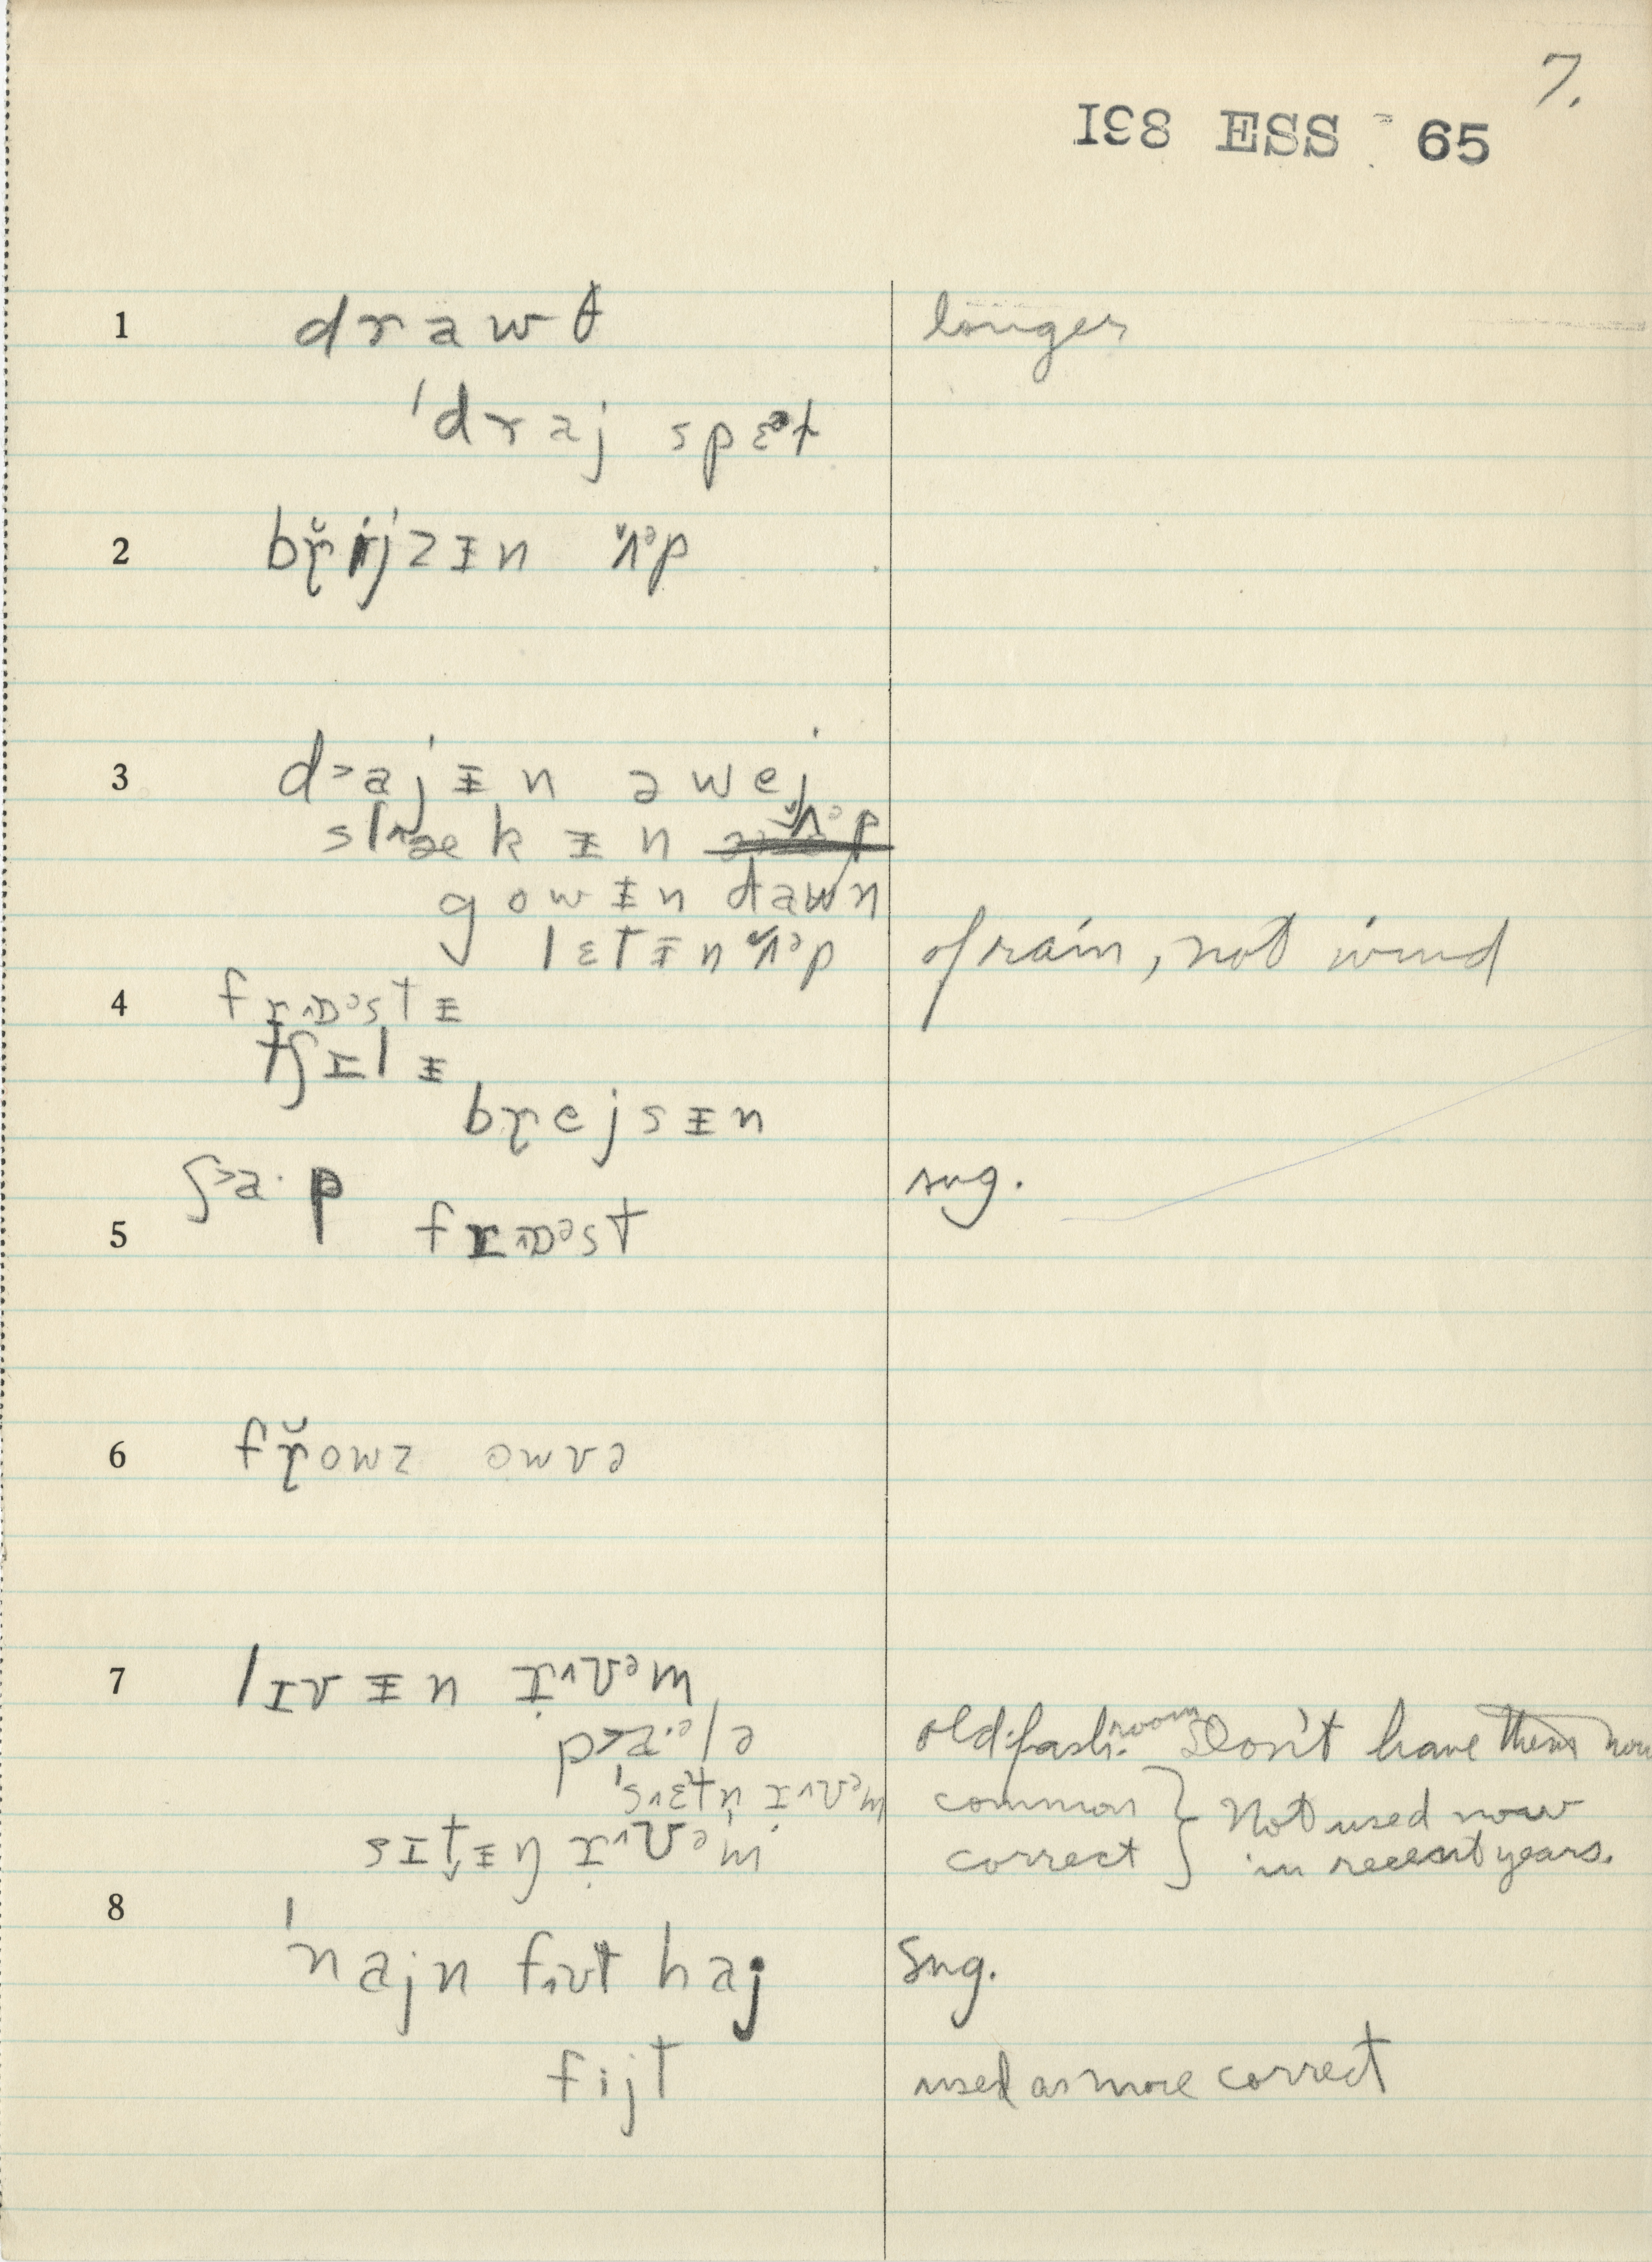 7.
I38 ESS 65
1 drawθ longer
ˈdraj spɛᵊt
2 br̯̆ijzɨn ʌ̆ᵊp
3 d˃ajɨn əwej
sl^ækɨn ʌ̆ᵊp
gowɨn dawn
lɛtɨn ʌ̆ᵊp of rain, not wind
4 fr̯^ɒᵊstɨ
tʃɪlɨ
br̯ejsɨn
ʃ˃a·p sug.
5 fr̯^ɒᵊst
6 fr̯̆owz owvə
7 lɪvɨn r̯^ʊᵊm
p˃a·ᵊlə old-fash. room Don't have them now
ˈs^ɛtn̩ r^ʊᵊm common } Not used now
sɪt̬ɨŋ r̯^ʊᵊm correct } in recent years.
8
ˈnajn f^ʊt haj Sug.
fijt used as more correct